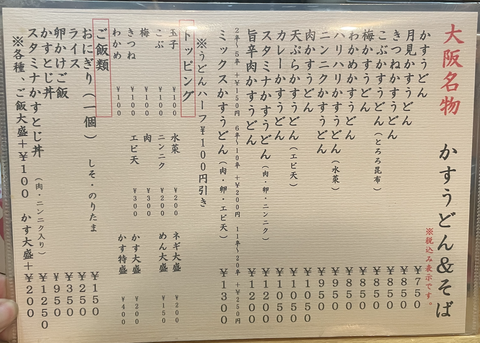 大阪名物 かすうどん&そば
※税込み表示です。
かすうどん ¥750
月見かすうどん ¥850
きつねかすうどん ¥850
こぶかすうどん(とろろ昆布) ¥850
梅かすうどん ¥850
わかめかすうどん ¥850
ハリハリかすうどん(水菜) ¥950
ニンニクかすうどん ¥950
肉かすうどん
天ぷらかすうどん(エビ天)
カレーかすうどん
スタミナかすうどん(肉・卵・ニンニク) ¥1200
旨辛肉かすうどん
2辛~5辛+¥100円 6辛~10辛+¥200円 11辛~20辛+¥250円
ミックスかすうどん(肉・卵・エビ天) ¥1300
※うどんハーフ¥100円引き
トッピング
玉子 ¥100 水菜 ¥200 ネギ大盛 ¥200
こぶ ¥100 ニンニク ¥200 めん大盛 ¥150
梅 ¥100 肉 ¥300 かす大盛 ¥200
きつね ¥100 エビ天 ¥300 かす特盛 ¥400
わかめ ¥100
ご飯類
おにぎり(一個) しそ・のりたま ¥150
ライス ¥250
卵かけご飯 ¥350
かすとじ丼 ¥950
スタミナかすとじ丼(肉・ニンニク入り) ¥1250
※各種、ご飯大盛+¥100 かす大盛+¥200